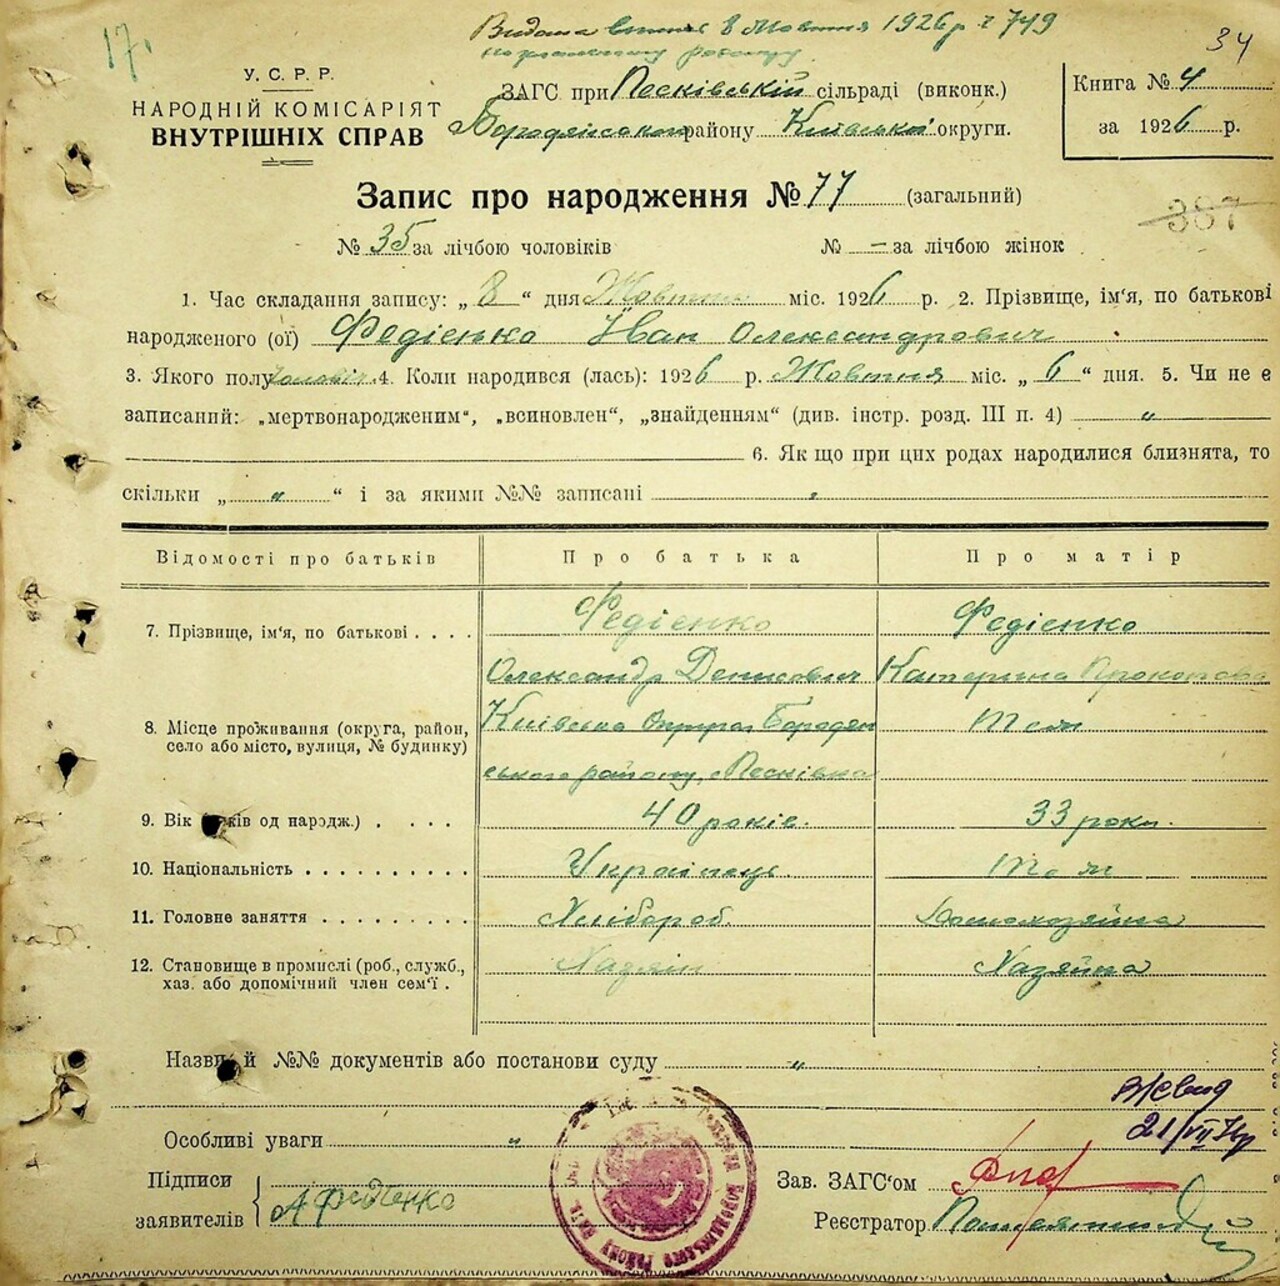 17.
Видана витяг 8 Жовтня 1926 р № 749
34
У. С. Р. Р.
НАРОДНІЙ КОМІСАРІЯТ
ВНУТРІШНІХ СПРАВ
ЗАГС при Песківській сільраді (виконк.)
Бородянського району Київської округи.
Книга № 4
за 1926 р.
Запис про народження № 77 (загальний)
387
№ 35 за лічбою чоловіків № — за лічбою жінок
1. Час складання запису: „ 8 “ дня Жовтня міс. 1926 р. 2. Прізвище, ім'я, по батькові
народженого (ої) Федієнко Іван Олександрович
3. Якого полу чоловіч. 4. Коли народився (лась): 1926 р. Жовтня міс. „ 6 “ дня. 5. Чи не є
записаний: „мертвонародженим“, „всиновлен“, „знайденням“ (див. інстр. розд. III п. 4) „
6. Як що при цих родах народилися близнята, то
скільки „ „ “ і за якими №№ записані
Відомості про батьків Про батька Про матір
7. Прізвище, ім'я, по батькові . . . . Федієнко Федієнко
Олександр Денисович Катерина Прокопова
8. Місце проживання (округа, район, Київська Округа Бородян Теж
село або місто, вулиця, № будинку)
ського району, Песківка
9. Вік ків од народж.) . . . . 40 років. 33 роки.
10. Національність . . . . . . . . . . Українець. Теж
11. Головне заняття . . . . . . . . . Хлібороб. Домохозяйка
12. Становище в промислі (роб., служб., Хазяїн Хазяйка
хаз. або допомічний член сем'ї .
Назви й №№ документів або постанови суду „
21/VII
Особливі уваги „
Підписи
заявителів А Федіенко
Зав. ЗАГС'ом
Реєстратор